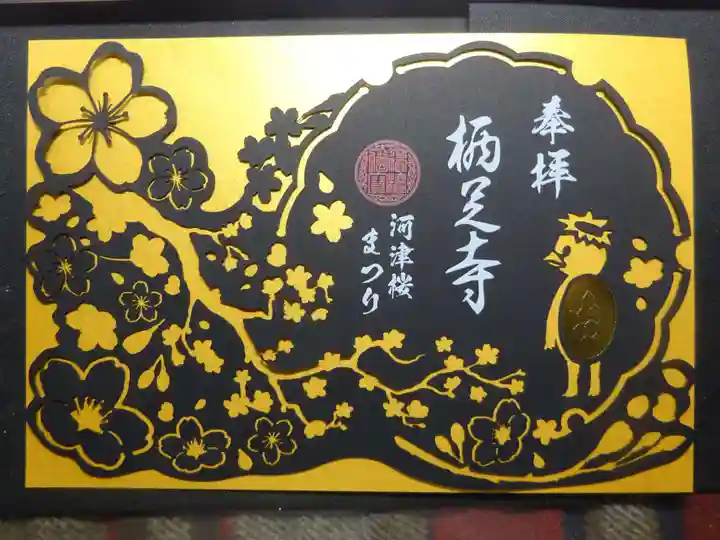 奉拝
栖足寺
河津桜
まつり